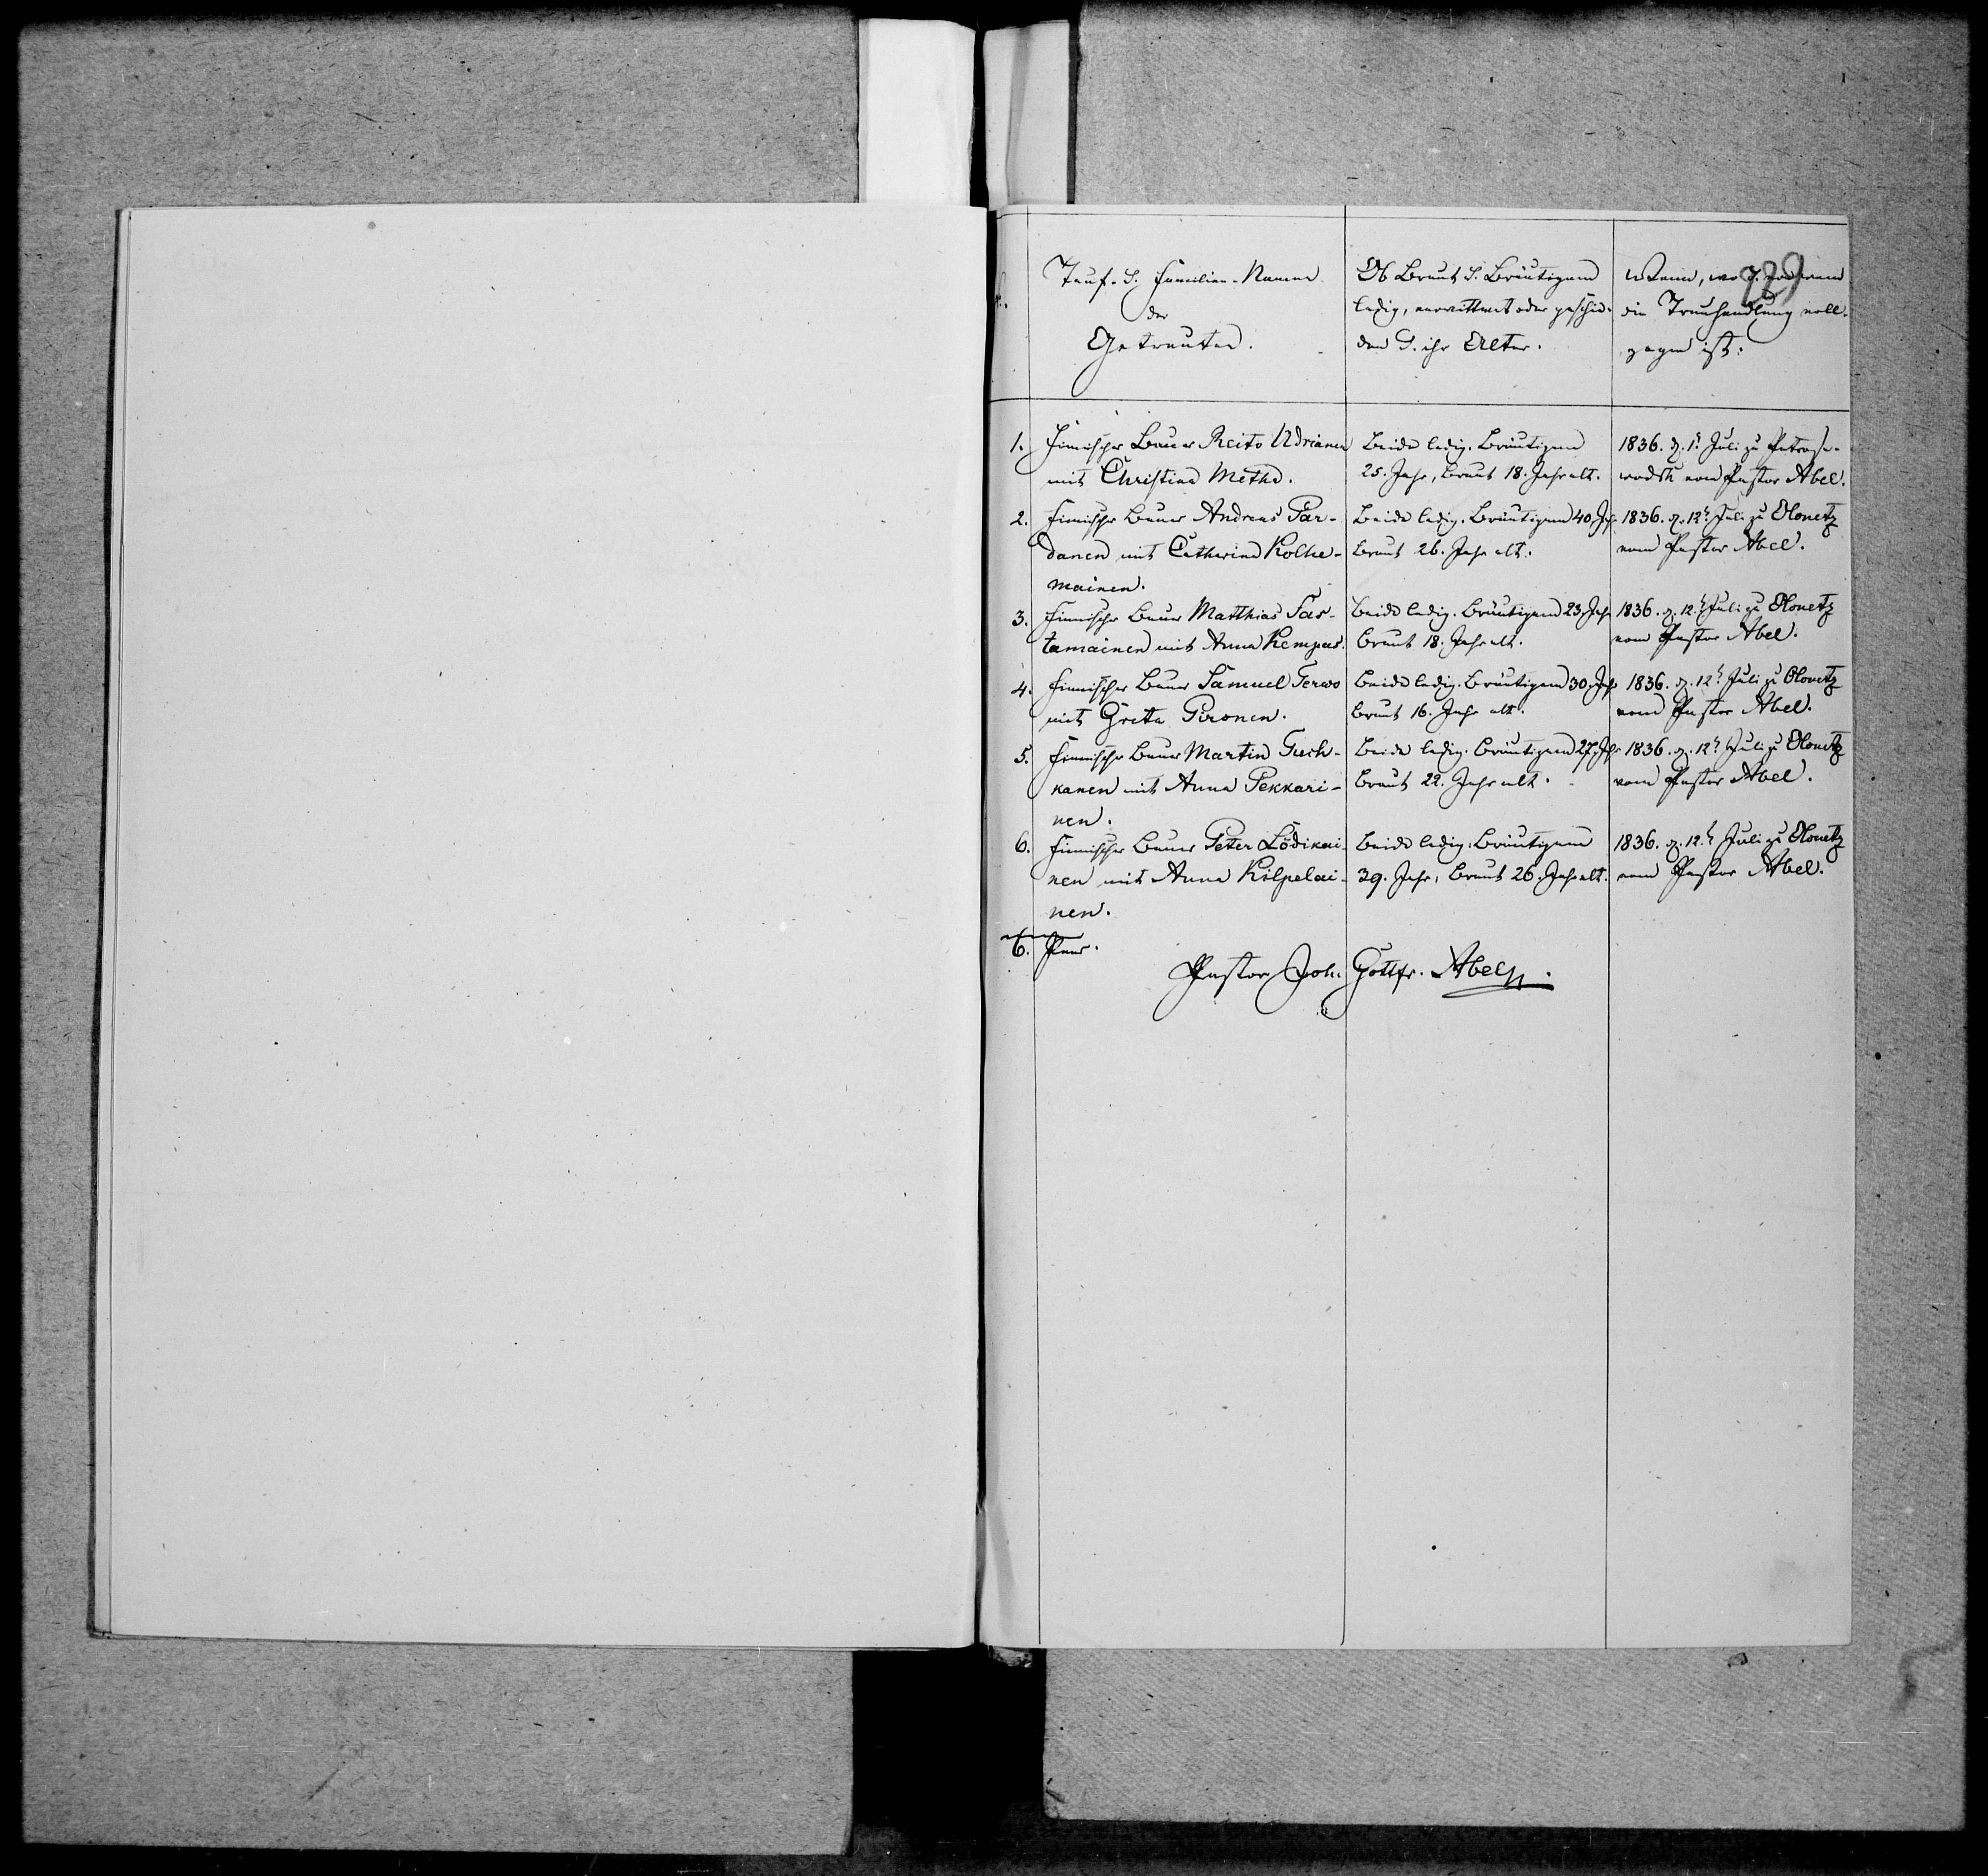 729
Tauf- u. Familien-Namen
der
Getrauten.
Ob Braut u. Bräutigam
ledig, verwittwet oder geschie-
den u. ihr Alter.
Wann, wo u. von wem
die Trauhandlung voll-
zogen ist.
1. Finnischer Bauer Reito Adrianen
mit Christina Metho.
Beide ledig. Bräutigam
25. Jahr, Braut 18. Jahr alt.
1836. d. 1. Juli zu Petrosa-
wodsk vom Pastor Abel.
2. Finnischer Bauer Andreas Par-
danen mit Catharina Kolke-
mainen.
Beide ledig. Bräutigam 40. Jahr
Braut 26. Jahr alt.
1836. d. 12t Juli zu Olonetz
vom Pastor Abel.
3. Finnischer Bauer Matthias Tas-
tamainen mit Anna Kempas.
Beide ledig. Bräutigam 23. Jahr
Braut 18. Jahr alt.
1836. d. 12t Juli zu Olonetz
vom Pastor Abel.
4. Finnischer Bauer Samuel Terwo
mit Greta Pironen.
Beide ledig. Bräutigam 30. Jahr
Braut 16. Jahr alt.
1836. d. 12t Juli zu Olonetz
vom Pastor Abel.
5. Finnischer Bauer Martin Tuch-
kanen mit Anna Pekkari-
nen.
Beide ledig. Bräutigam 27. Jahr
Braut 22. Jahr alt.
1836. d. 12t Juli zu Olonetz
vom Pastor Abel.
6. Finnischer Bauer Peter Lödikai-
nen mit Anna Kilpelai-
nen.
Beide ledig. Bräutigam
39. Jahr, Braut 26. Jahr alt.
1836. d. 12t Juli zu Olonetz
vom Pastor Abel.
6. Paar.
Pastor Joh. Gottfr. Abel